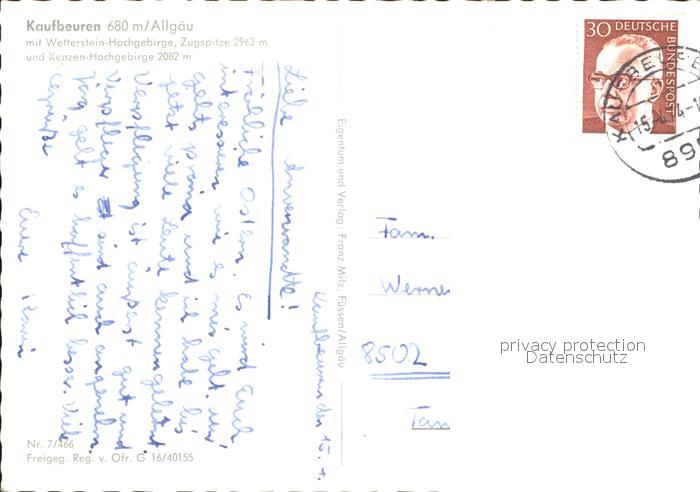 Kaufbeuren 680 m/Allgäu
mit Wetterstein-Hochgebirge, Zugspitze 2963 m
und Kenzen-Hochgebirge 2082 m
30 DEUTSCHE BUNDESPOST
KAUFBEURE
15.-4.74
895
Kaufbeuren den 15. 4.
Liebe Anverwandte!
Fröhliche Ostern. Es wird Euch
interessieren wie es mir geht. Mir
gehts prima und ich habe bis
jetzt viele Leute kennengelernt.
Verpflegung ist äußerst gut und
Verpfleger sind auch angenehm.
Jörg geht es hoffentlich besser. Viele
Grüße
Euere
Eigentum und Verlag: Franz Milz, Füssen/Allgäu
Fam.
Werne
8502
privacy protection
Datenschutz
Nr. 7/466
Freigeg. Reg. v. Ofr. G 16/40155